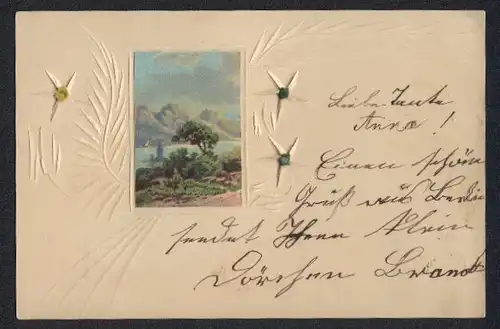 Liebe Tante
Anna!
Einen schön
Gruß aus Berlin
sendet Ihnen klein
Dörchen Brandt